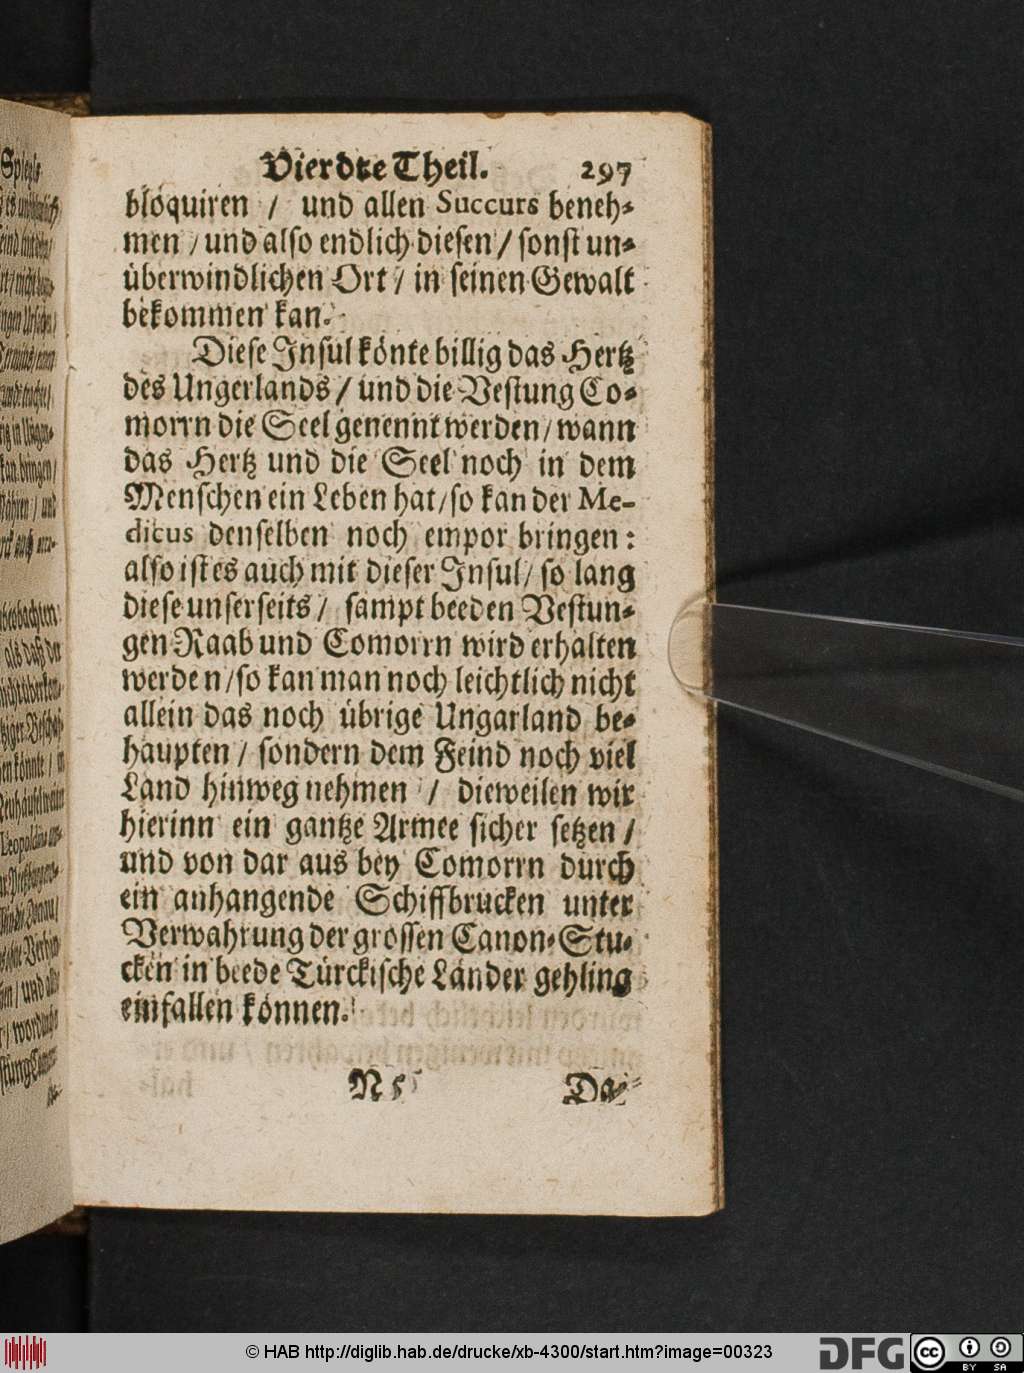 Vierdte Theil. 297
bloquiren / und allen Succurs beneh-
men / und also endlich diesen / sonst un-
überwindlichen Ort / in seinen Gewalt
bekommen kan.
Diese Insul könte billig das Hertz
des Ungerlands / und die Vestung Co-
morrn die Seel genennt werden / wann
das Hertz und die Seel noch in dem
Menschen ein Leben hat / so kan der Me-
dicus denselben noch empor bringen:
also ist es auch mit dieser Insul / so lang
diese unserseits / sampt beeden Vestun-
gen Raab und Comorrn wird erhalten
werden / so kan man noch leichtlich nicht
allein das noch übrige Ungarland be-
haupten / sondern dem Feind noch viel
Land hinweg nehmen / dieweilen wir
hierinn ein gantze Armee sicher setzen /
und von dar aus bey Comorrn durch
ein anhangende Schiffbrucken unter
Verwahrung der grossen Canon-Stu-
cken in beede Türckische Länder gehling
einfallen können.
N 5 Da-
© HAB http://diglib.hab.de/drucke/xb-4300/start.htm?image=00323
DFG
cc
BY SA